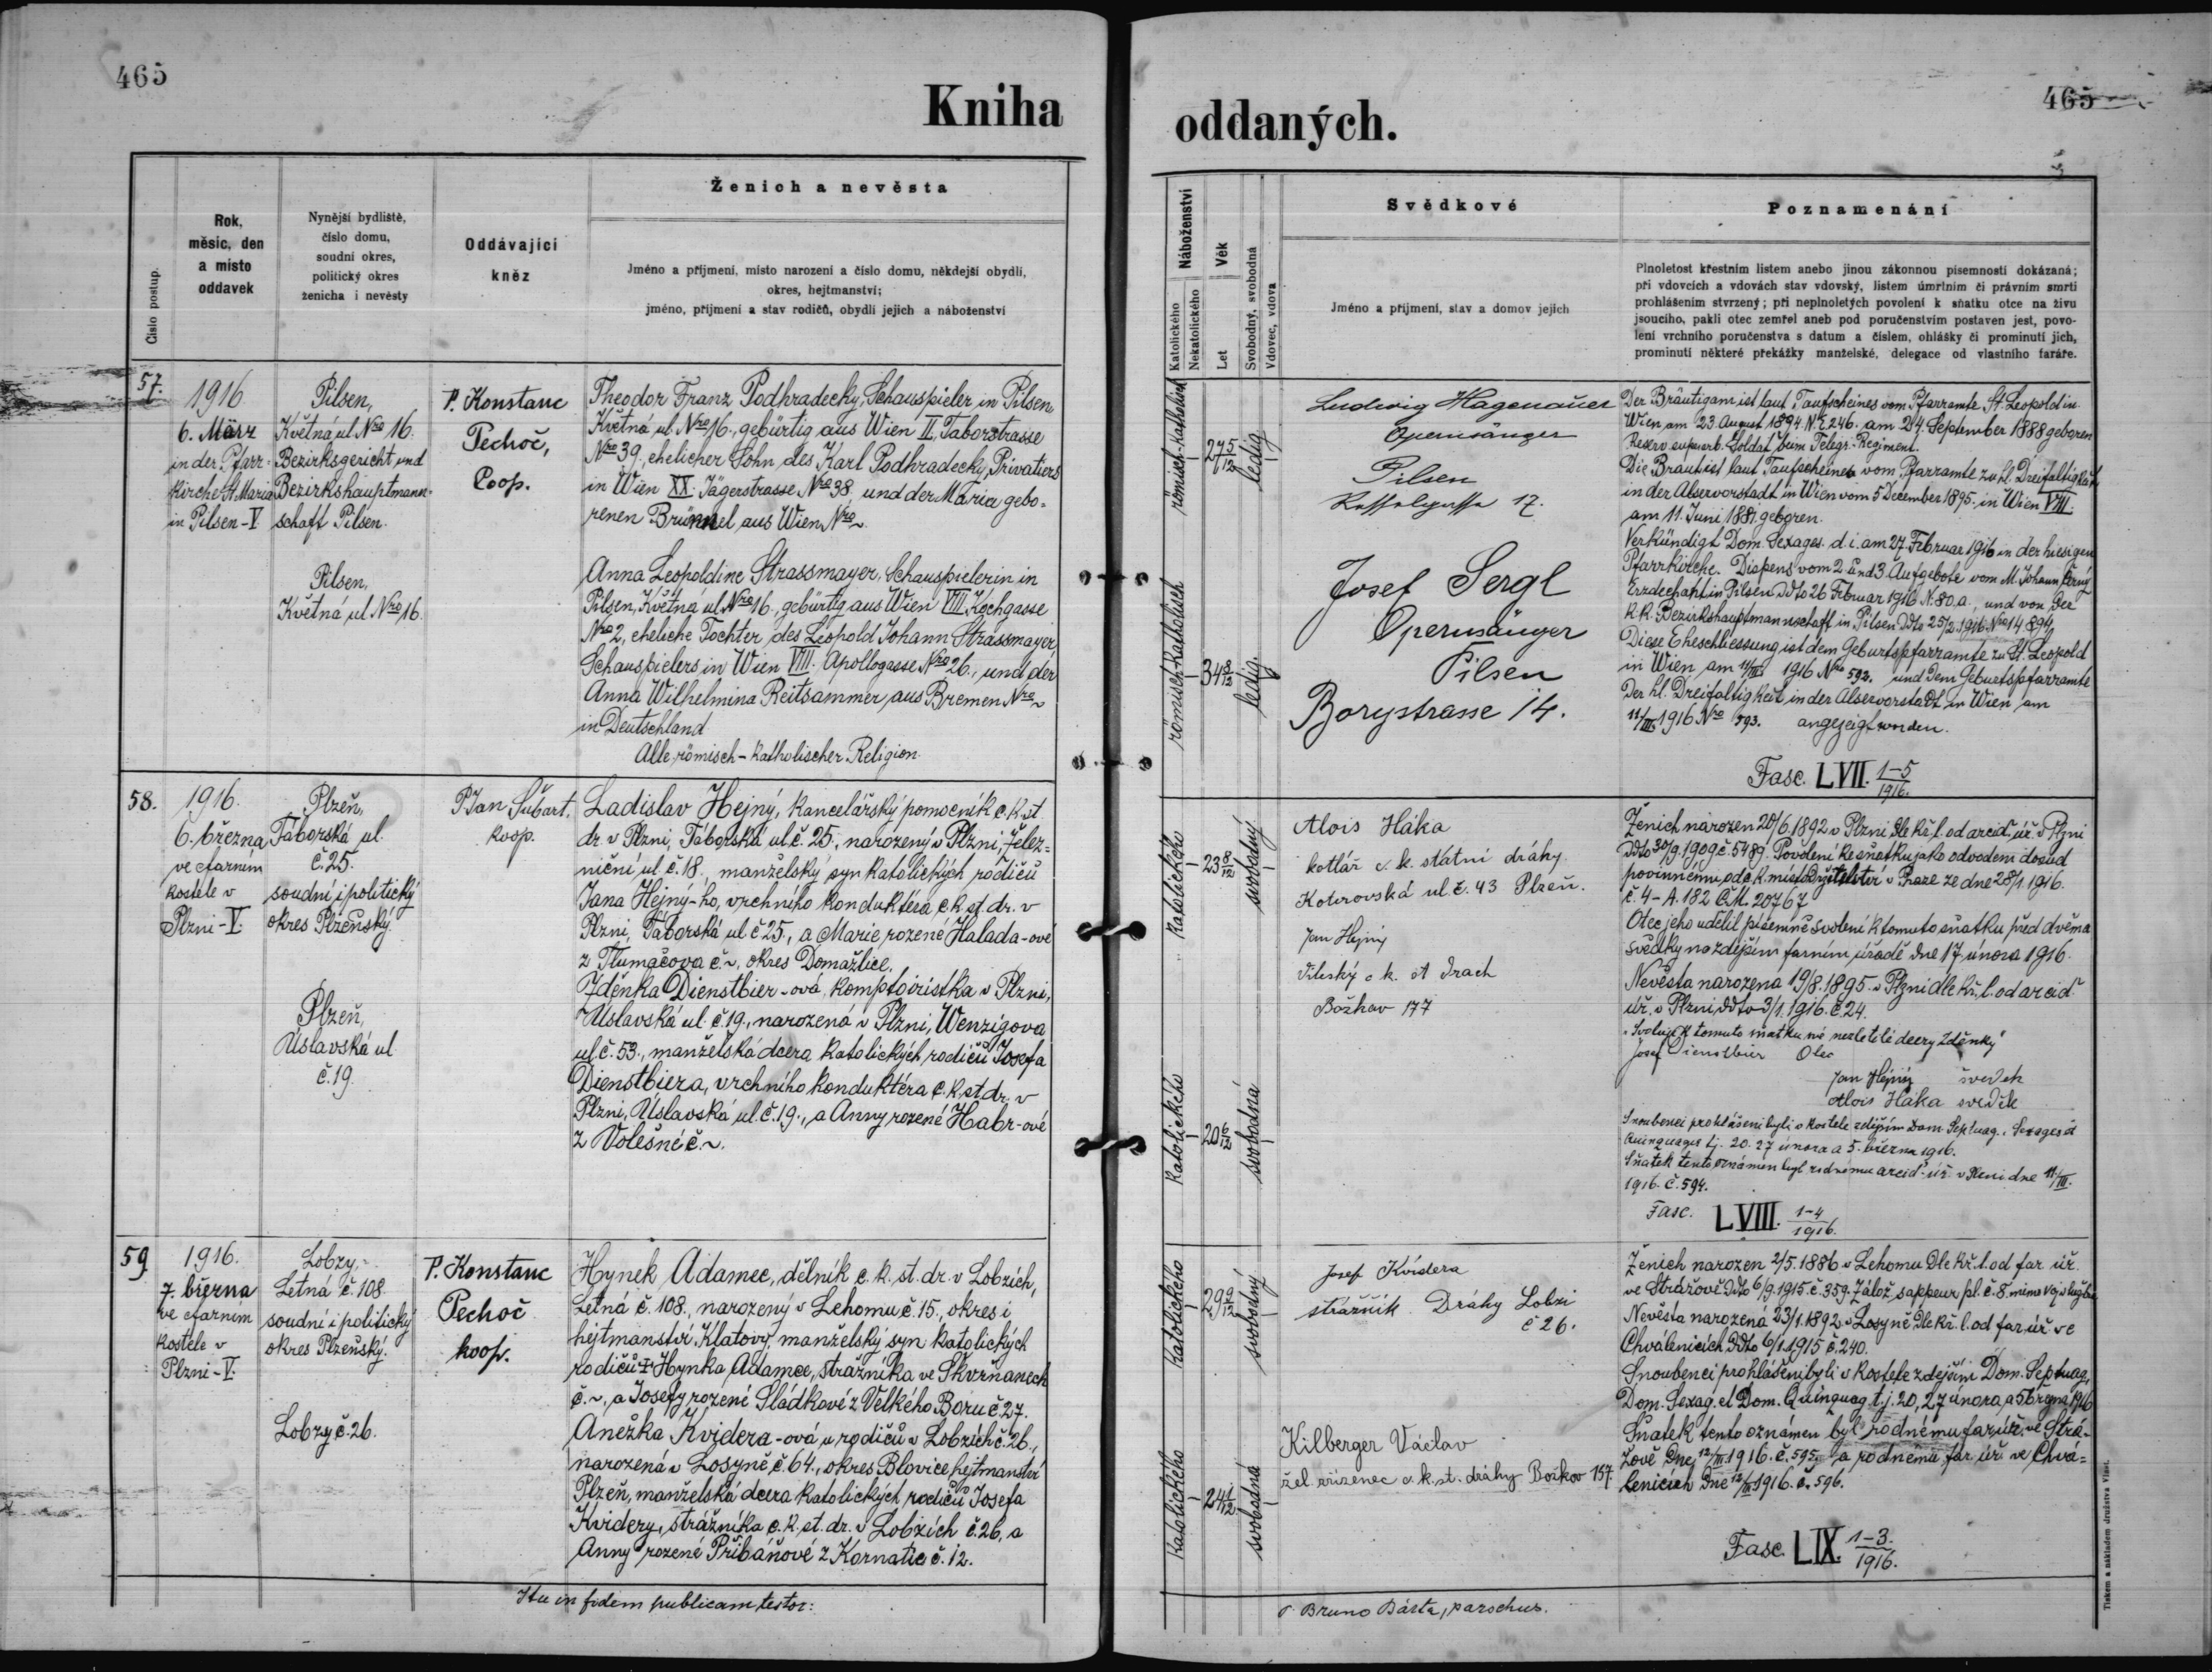 465
Kniha
Číslo postup.
Rok,
měsíc, den
a místo
oddavek
Nynější bydliště,
číslo domu,
soudní okres,
politický okres
ženicha i nevěsty
Oddávající
kněz
Ženich a nevěsta
Jméno a příjmení, místo narození a číslo domu, někdejší obydlí,
okres, hejtmanství;
jméno, příjmení a stav rodičů, obydlí jejich a náboženství
57.
1916
6. März
in der Pfarr-
kirche St. Maria
in Pilsen-V
Pilsen,
Květná ul. Nro 16.
Bezirksgericht und
Bezirkshauptmann-
schaft Pilsen.
Pilsen,
Květná ul Nro 16.
P. Konstanc
Pechoč,
Coop.
Theodor Franz Podhradecky, Schauspieler in Pilsen,
Květná ul. Nro 16., gebürtig aus Wien II, Taborstrasse
Nro 39., ehelicher Sohn des Karl Podhradecky, Privatiers
in Wien XX. Jägerstrasse Nro 38. und der Maria gebo-
renen Brünnel aus Wien Nro ~
Anna Leopoldine Strassmayer, Schauspielerin in
Pilsen, Květná ul. Nro 16., gebürtig aus Wien VIII. Kochgasse
Nro 2, eheliche Tochter des Leopold Johann Strassmayer,
Schauspielers in Wien VIII. Apollogasse Nro 26., und der
Anna Wilhelmina Reitsammer aus Bremen Nro ~
in Deutschland
Alle römisch-katholischer Religion.
58.
1916.
6. března
ve farním
kostele v
Plzni-V.
Plzeň,
Táborská ul.
č. 25.
soudní i politický
okres Plzeňský.
Plzeň,
Úslavská ul
č. 19.
P. Jan Šubart,
koop.
Ladislav Hejný, kancelářský pomocník c. k. st.
dr. v Plzni, Táborská ul. č. 25., narozený v Plzni, Želez-
niční ul. č. 18., manželský syn katolických rodičů
Jana Hejný-ho, vrchního konduktéra c. k. st. dr. v
Plzni, Táborská ul. č. 25., a Marie, rozené Halada-ové
z Tlumačova č. ~, okres Domažlice.
Zděnka Dienstbier-ová, komptoiristka v Plzni,
Úslavská ul. č. 19., narozená v Plzni, Wenzigova
ul. č. 53., manželská dcera katolických rodičů Josefa
Dienstbiera, vrchního konduktéra c. k. st. dr. v
Plzni, Úslavská ul. č. 19., a Anny rozené Habr-ové
z Volešné č. ~.
59.
1916.
7. března
ve farním
kostele v
Plzni-V.
Lobzy,
Letná č. 108.
soudní i politický
okres Plzeňský.
Lobzy č. 26.
P. Konstanc
Pechoč
koop.
Hynek Adamec, dělník c. k. st. dr. v Lobzích,
Letná č. 108., narozený v Lehomu č. 15., okres i
hejtmanství Klatovy, manželský syn katolických
rodičů Hynka Adamce, strážníka ve Skvrňanech
č. ~, a Josefy rozené Sládkové z Velkého Boru č. 27.
Anežka Kvidera-ová u rodičů v Lobzích č. 26.,
narozená v Losyně č. 64., okres Blovice, hejtmanství
Plzeň, manželská dcera katolických rodičů Josefa
Kvidery, strážníka c. k. st. dr. v Lobzích č. 26, a
Anny rozené Přibáňové z Kornatic č. 12.
Ita in fidem publicam testor:
465
oddaných.
Náboženství
Katolického
Nekatolického
Věk
Let
Svobodný, svobodná
Vdovec, vdova
Svědkové
Jméno a příjmení, stav a domov jejich
Poznamenání
Plnoletost křestním listem anebo jinou zákonnou písemností dokázaná;
při vdovcích a vdovách stav vdovský, listem úmrtním či právním smrti
prohlášením stvrzený; při neplnoletých povolení k sňatku otce na živu
jsoucího, pakli otec zemřel aneb pod poručenstvím postaven jest, povo-
lení vrchního poručenstva s datum a číslem, ohlášky či prominutí jich,
prominutí některé překážky manželské, delegace od vlastního faráře.
römisch-katholisch
27 5/12
ledig
römisch-katholisch
34 8/12
ledig.
Ludwig Hagenauer
Opernsänger
Pilsen
17.
Josef Sergl
Opernsänger
Pilsen
Borystrasse 14.
Der Bräutigam ist laut Taufscheines vom Pfarramte St. Leopold in
Wien am 23. August 1894. N. E. 246. am 24. September 1888 geboren
Reserv. superarb. Soldat beim Telegr.-Regiment.
Die Braut ist laut Taufscheines vom Pfarramte zu hl. Dreifaltigkeit
in der Alservorstadt in Wien vom 5 December 1895. in Wien VIII.
am 11. Juni 1881 geboren.
Verkündigt Dom. Sexages. d. i. am 27. Februar 1916 in der hiesigen
Pfarrkirche. Dispens vom 2. und 3. Aufgebote vom M. Johann Černý
Erzdechant in Pilsen ddto 26 Februar 1916 N. 80. a., und von der
k. k. Bezirkshauptmannschaft in Pilsen ddto 25/2. 1916. Nro 14894.
Diese Eheschliessung ist dem Geburtspfarramte zu St. Leopold
in Wien am 11/III 1916 Nro 592. und dem Geburtspfarramte
der hl. Dreifaltigkeit in der Alservorstadt in Wien am
11/III 1916 Nro 593. angezeigt worden.
Fasc. LVII. 1-5/1916.
katolického
23 8/12
svobodný
katolického
20 6/12
svobodná
Alois Háka
kotlář c. k. státní dráhy.
Koterovská ul č. 43 Plzeň.
Jan Hejný
c. k. st drach
Božkov 177
Ženich narozen 20/6. 1892 v Plzni dle kř. l. od arcid. úř. v Plzni
ddto 30/9. 1909 č. 5489. Povolení ke sňatku jako odvodem dosud
povinnému od c. k. místodržitelství v Praze ze dne 28/1. 1916.
č. 4-A. 182 Č. M. 20767
Otec jeho udělil písemně svolení k tomuto sňatku před dvěma
svědky na zdejším farním úřadě dne 17 února 1916.
Nevěsta narozena 19/8. 1895. v Plzni dle kř. l. od arcid.
úř. v Plzni ddto 3/1. 1916. č. 24.
"Svoluji k tomuto sňatku mé nezletilé dcery Zděnky"
Josef Dienstbier Otec
Jan Hejný svedek
Alois Háka svedek
Snoubenci prohlášeni byli v kostele zdejším Dom. Septuag., Sexages. a
Quinquages. t. j. 20. 27 února a 5. března 1916.
Sňatek tento oznámen byl rodnému arcid. úř. v Plzni dne 11/III.
1916. č. 594.
Fasc. LVIII. 1-4/1916.
katolického
29 9/12
svobodný
katolického
24 1/12
svobodná
Josef Kvidera
strážník Dráhy Lobzi
č 26.
Kilberger Václav
žel. zřízenec c. k. st. dráhy Božkov 157.
Ženich narozen 2/5. 1886 v Lehomu dle kř. l. od far. úř.
ve Strážově ddto 6/9. 1915 č. 359. Zálož. sappeur pl. č. 8. mimo voj. službu
Nevěsta narozená 23/1. 1892 v Losyně dle kř. l. od far. úř. ve
Chválenicích ddto 6/1. 1915 č. 240.
Snoubenci prohlášeni byli v kostele zdejším Dom. Septuag.,
Dom. Sexag. et Dom. Quinquag. t. j. 20, 27 února a 5 března 1916
Sňatek tento oznámen byl rodnému far. úř. ve Strá-
žově dne 12/III 1916. č. 595. a rodnému far. úř. ve Chvá-
lenicích dne 12/III 1916. č. 596.
Fasc. LIX. 1-3./1916.
P. Bruno Bárta, parochus.
Tiskem a nákladem družstva Vlast.